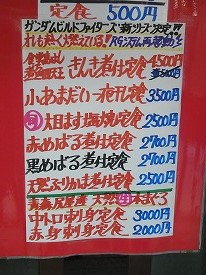 定食 500円
ガンダムビルドファイターズ新シリーズ決定
きんき煮付定食 4500円
小あまだい一夜干定食 3500円
大目ます塩焼定食 2500円
赤めばる煮付定食 2700円
黒めばる煮付定食 2700円
天然ぶりかま煮定食 2500円
中トロ刺身定食 3000円
赤身刺身定食 2000円